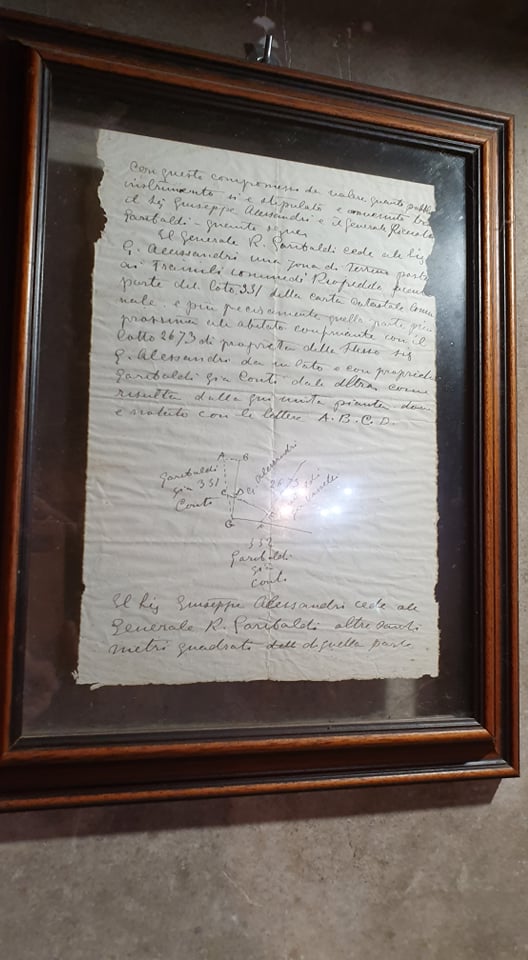 Con questo compromesso da valere quanto pubb
instrumento si è stipulato e convenuto tra
il Sig Giuseppe Alessandri e il Generale Ricciotti
Garibaldi - quanto segue
Il Generale R. Garibaldi cede al Sig
G. Alessandri una zona di terreno posta
ai Freinili comune di Riofreddo facente
parte del lotto 331 della carta catastale comu
nale. e più precisamente quella parte più
prossima all abitato confinante con il
lotto 2673 di proprietà dello stesso sig
G. Alessandri da un lato e con proprietà
Garibaldi già Conti dall altra come
risulta dalla qui unita pianta dove
è notato con le lettere A. B. C. D.
A B
Garibaldi
già 331
Conti
C D
Alessandri
2673
Garibaldi
G
332
Garibaldi
già
Conti
Il Sig Giuseppe Alessandri cede al
Generale R. Garibaldi altre tanti
metri quadrati di quella parte